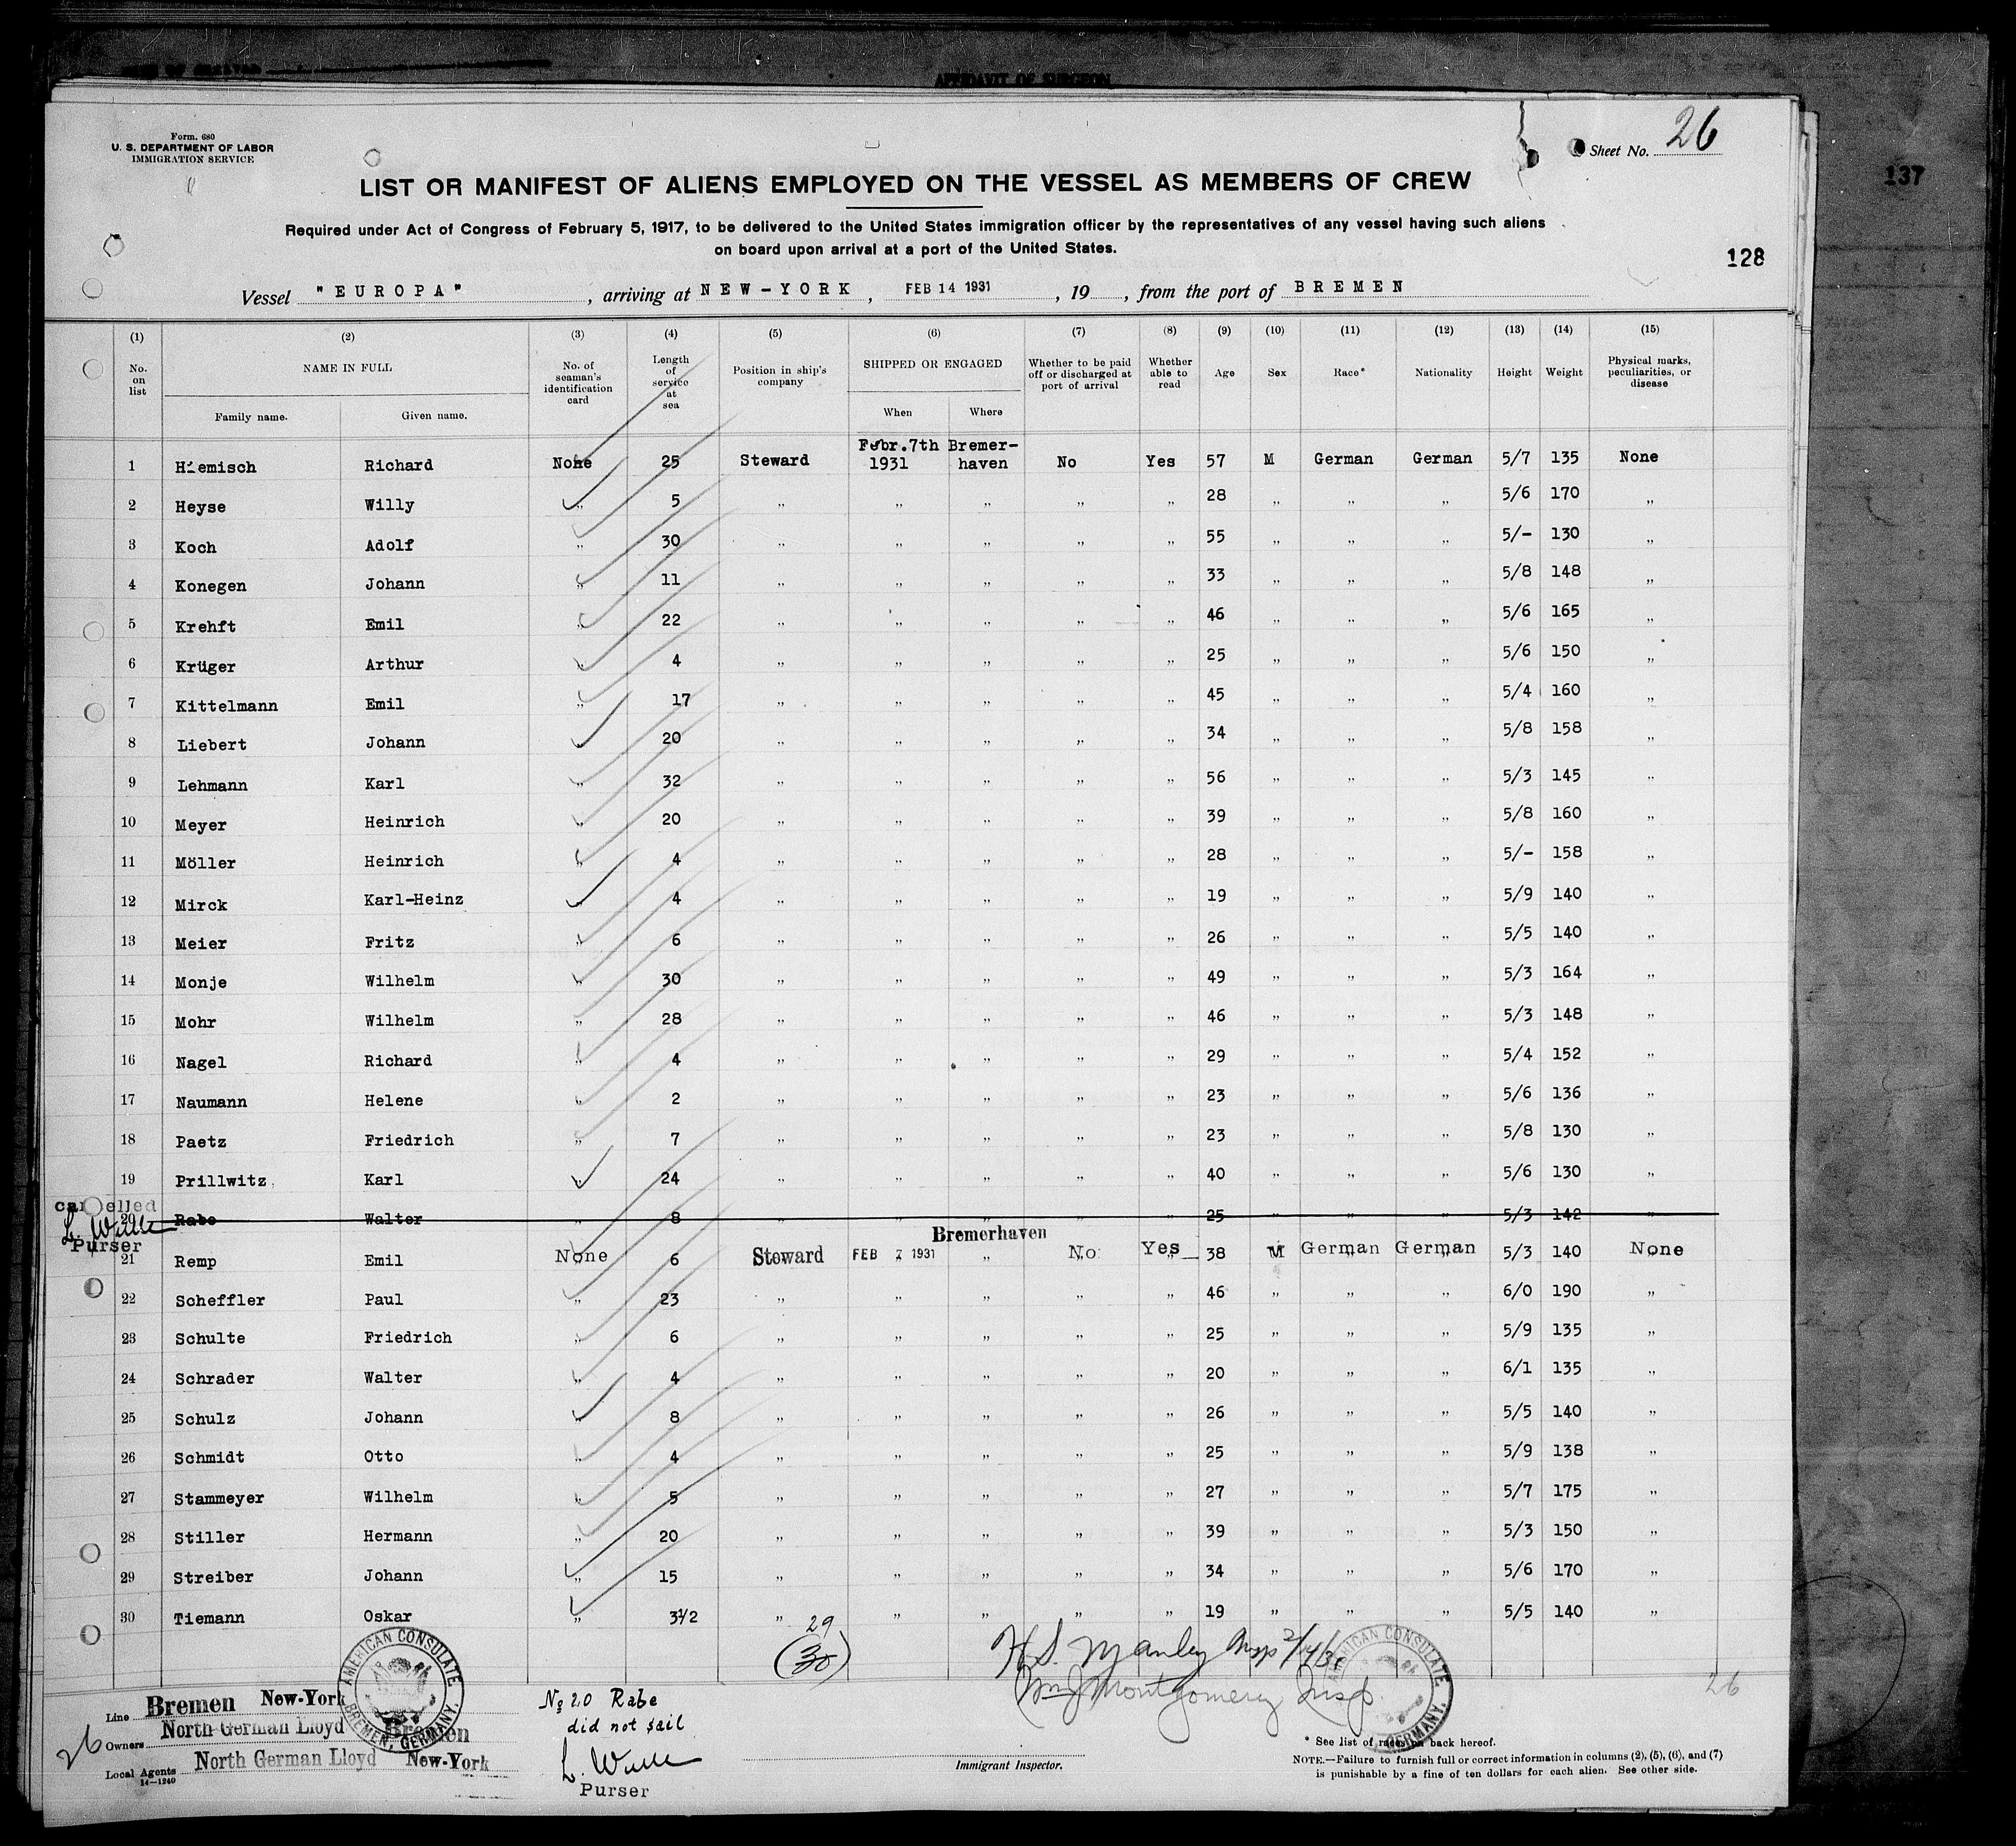 AFFIDAVIT OF SURGEON
Form. 680
U. S. DEPARTMENT OF LABOR
IMMIGRATION SERVICE
Sheet No. 26
137
LIST OR MANIFEST OF ALIENS EMPLOYED ON THE VESSEL AS MEMBERS OF CREW
Required under Act of Congress of February 5, 1917, to be delivered to the United States immigration officer by the representatives of any vessel having such aliens
on board upon arrival at a port of the United States.
128
Vessel "EUROPA", arriving at NEW-YORK, FEB 14 1931, 19, from the port of BREMEN
(1) (2) (3) (4) (5) (6) (7) (8) (9) (10) (11) (12) (13) (14) (15)
No. on list NAME IN FULL Family name. Given name. No. of seaman's identification card Length of service at sea Position in ship's company SHIPPED OR ENGAGED When Where Whether to be paid off or discharged at port of arrival Whether able to read Age Sex Race* Nationality Height Weight Physical marks, peculiarities, or disease
1 Hiemisch Richard None 25 Steward Febr.7th 1931 Bremer-haven No Yes 57 M German German 5/7 135 None
2 Heyse Willy " 5 " " " " " 28 " " " 5/6 170 "
3 Koch Adolf " 30 " " " " " 55 " " " 5/- 130 "
4 Konegen Johann " 11 " " " " " 33 " " " 5/8 148 "
5 Krehft Emil " 22 " " " " " 46 " " " 5/6 165 "
6 Krüger Arthur " 4 " " " " " 25 " " " 5/6 150 "
7 Kittelmann Emil " 17 " " " " " 45 " " " 5/4 160 "
8 Liebert Johann " 20 " " " " " 34 " " " 5/8 158 "
9 Lehmann Karl " 32 " " " " " 56 " " " 5/3 145 "
10 Meyer Heinrich " 20 " " " " " 39 " " " 5/8 160 "
11 Möller Heinrich " 4 " " " " " 28 " " " 5/- 158 "
12 Mirck Karl-Heinz " 4 " " " " " 19 " " " 5/9 140 "
13 Meier Fritz " 6 " " " " " 26 " " " 5/5 140 "
14 Monje Wilhelm " 30 " " " " " 49 " " " 5/3 164 "
15 Mohr Wilhelm " 28 " " " " " 46 " " " 5/3 148 "
16 Nagel Richard " 4 " " " " " 29 " " " 5/4 152 "
17 Naumann Helene " 2 " " " " " 23 " " " 5/6 136 "
18 Paetz Friedrich " 7 " " " " " 23 " " " 5/8 130 "
19 Prillwitz Karl " 24 " " " " " 40 " " " 5/6 130 "
cancelled
20 Rabe Walter " 8 " " " " " 25 " " " 5/3 142 "
Purser
Bremerhaven
21 Remp Emil None 6 Steward FEB 7 1931 " No Yes 38 M German German 5/3 140 None
22 Scheffler Paul " 23 " " " " " 46 " " " 6/0 190 "
23 Schulte Friedrich " 6 " " " " " 25 " " " 5/9 135 "
24 Schrader Walter " 4 " " " " " 20 " " " 6/1 135 "
25 Schulz Johann " 8 " " " " " 26 " " " 5/5 140 "
26 Schmidt Otto " 4 " " " " " 25 " " " 5/9 138 "
27 Stammeyer Wilhelm " 5 " " " " " 27 " " " 5/7 175 "
28 Stiller Hermann " 20 " " " " " 39 " " " 5/3 150 "
29 Streiber Johann " 15 " " " " " 34 " " " 5/6 170 "
30 Tiemann Oskar " 3½ " " " " " 19 " " " 5/5 140 "
29
(30)
H.S. Manley Insp 2/14/31
Wm J Montgomery Insp.
AMERICAN CONSULATE
BREMEN, GERMANY.
AMERICAN CONSULATE
GERMANY.
26
Line Bremen New-York
Owners North German Lloyd Bremen
Local Agents North German Lloyd New-York
14—1240
26
No 20 Rabe
did not sail
Purser
Immigrant Inspector.
* See list of races on back hereof.
NOTE.—Failure to furnish full or correct information in columns (2), (5), (6), and (7)
is punishable by a fine of ten dollars for each alien. See other side.